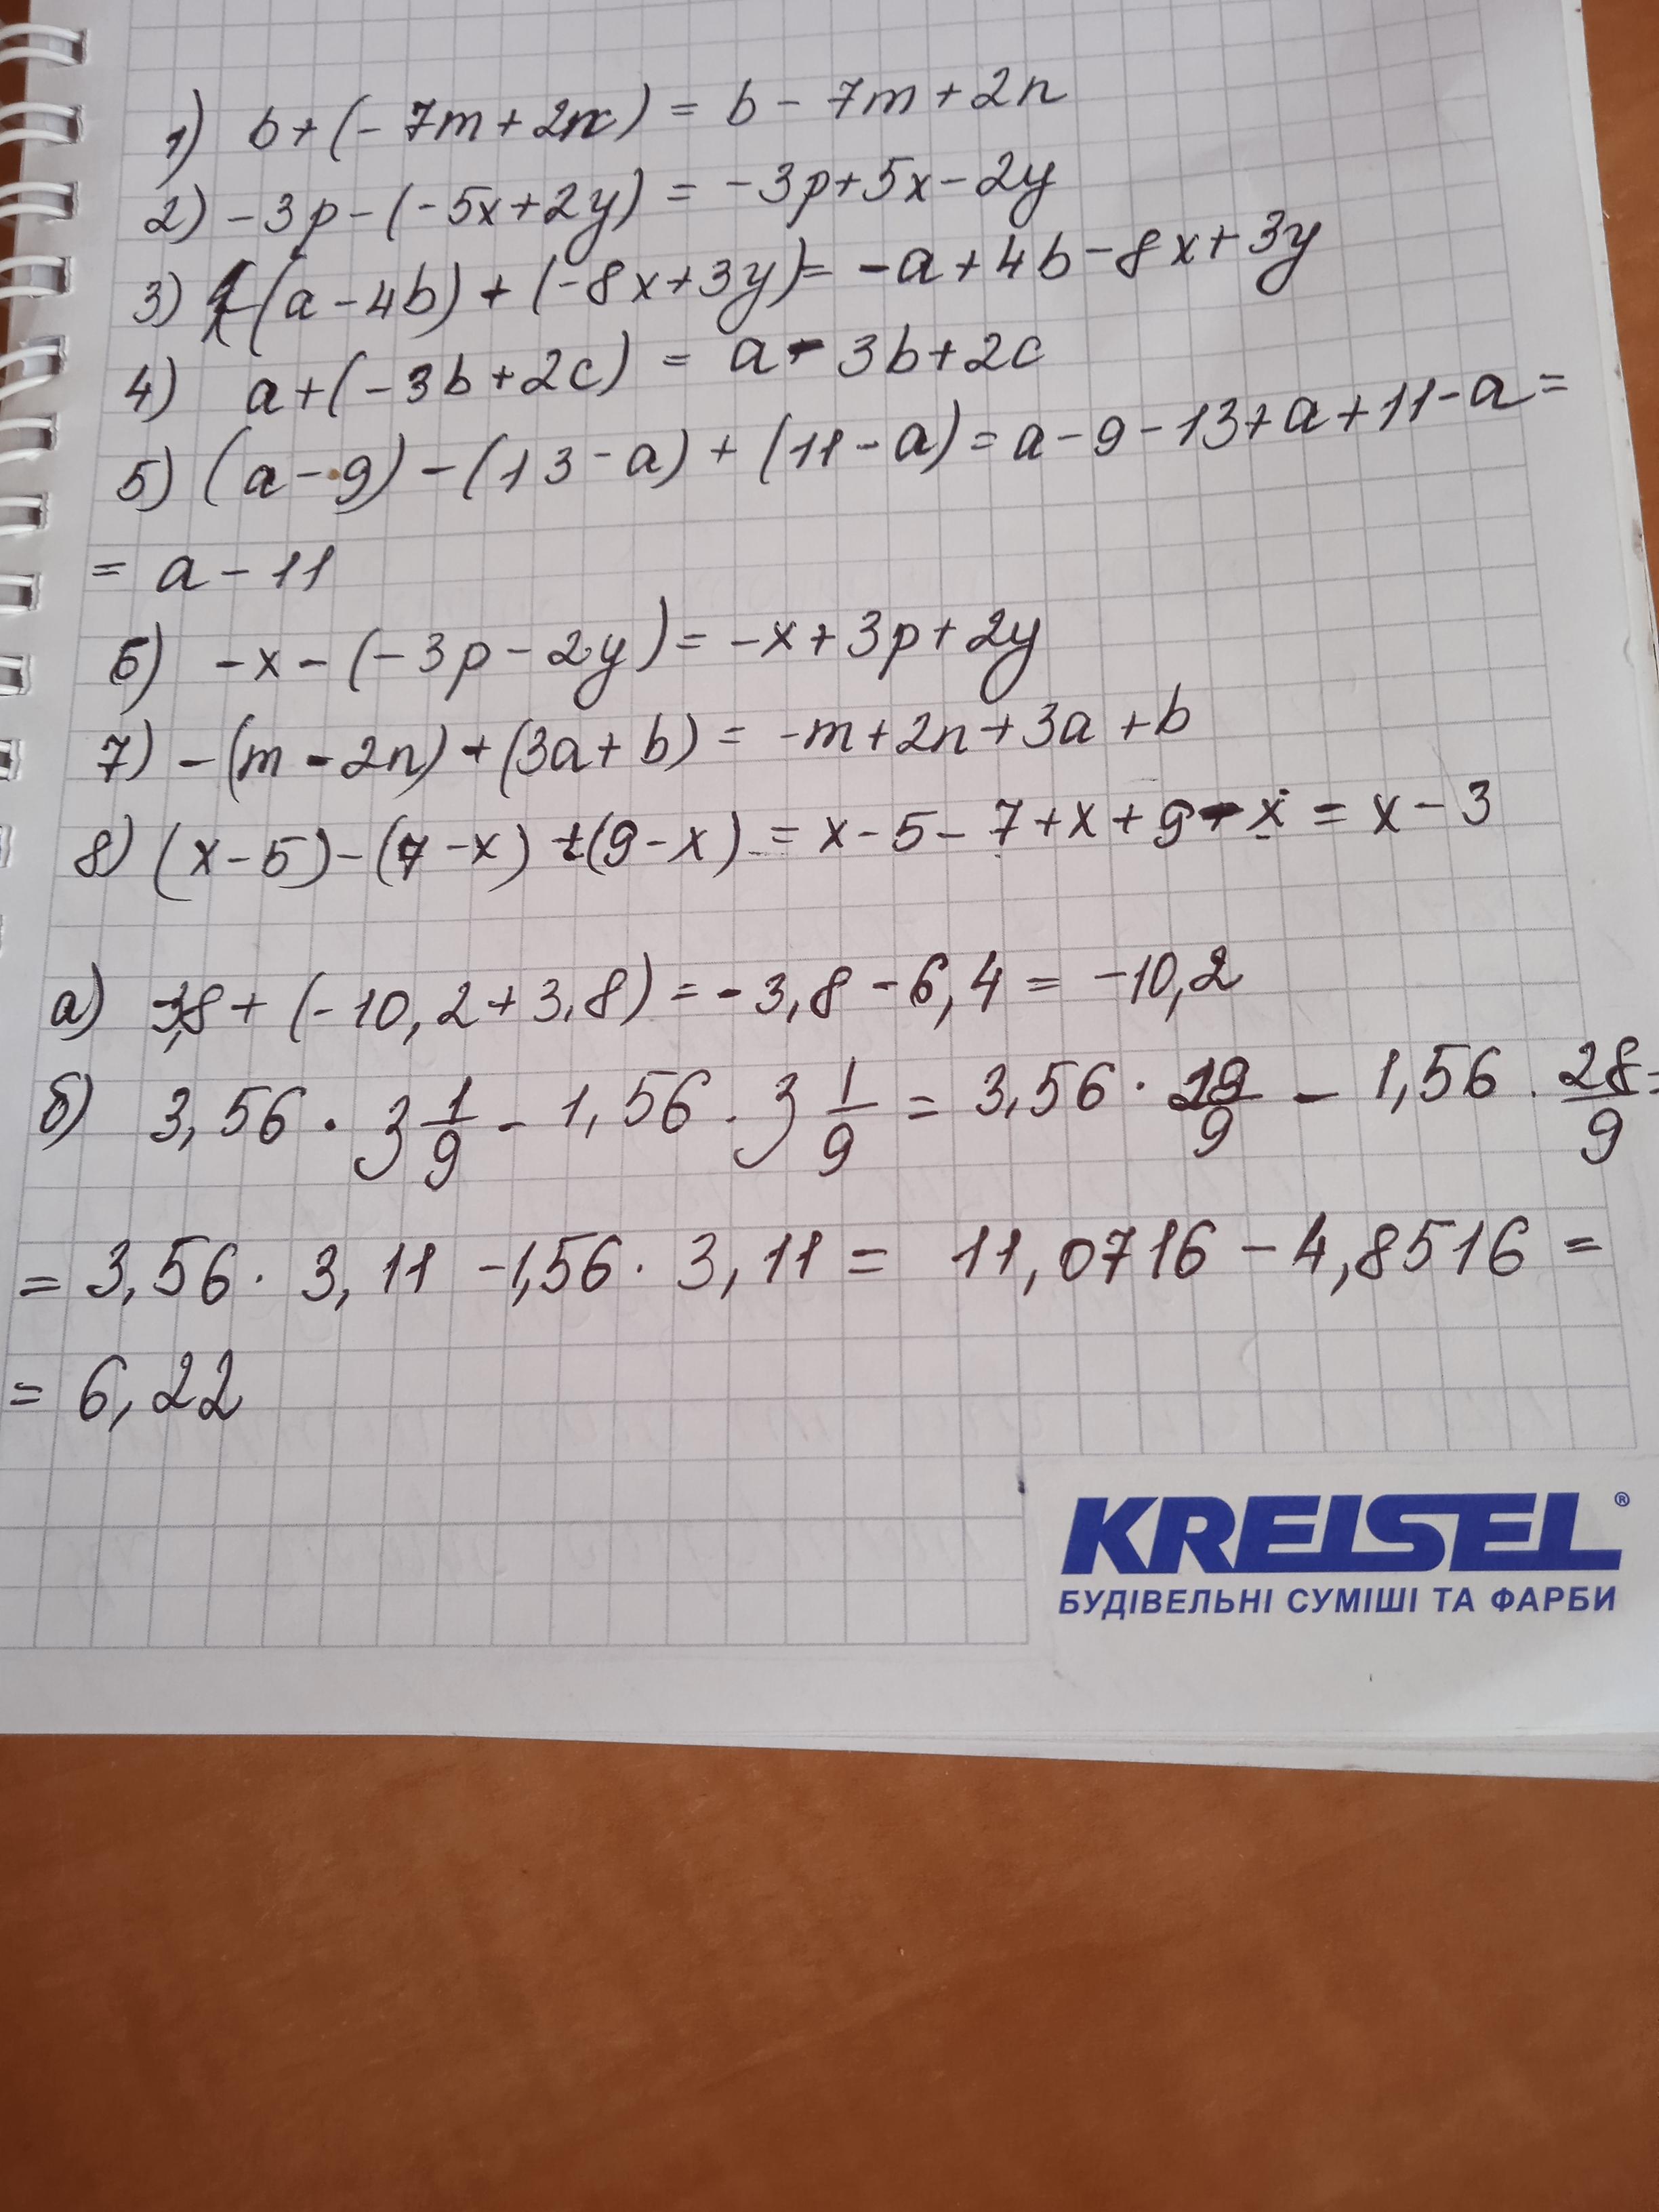 1) b+(-7m+2n) = b-7m+2n
2) -3p-(-5x+2y) = -3p+5x-2y
3) -(a-4b)+(-8x+3y)= -a+4b-8x+3y
4) a+(-3b+2c) = a-3b+2c
5) (a-9)-(13-a)+(11-a)=a-9-13+a+11-a=
= a-11
6) -x-(-3p-2y)=-x+3p+2y
7) -(m-2n)+(3a+b)= -m+2n+3a+b
8) (x-5)-(7-x)+(9-x)=x-5-7+x+9-x=x-3
а) -3,8+(-10,2+3,8)=-3,8-6,4=-10,2
б) 3,56·3 1/9-1,56·3 1/9=3,56·28/9-1,56·28/9=
=3,56·3,11-1,56·3,11=11,0716-4,8516=
=6,22
KREISEL®
БУДІВЕЛЬНІ СУМІШІ ТА ФАРБИ